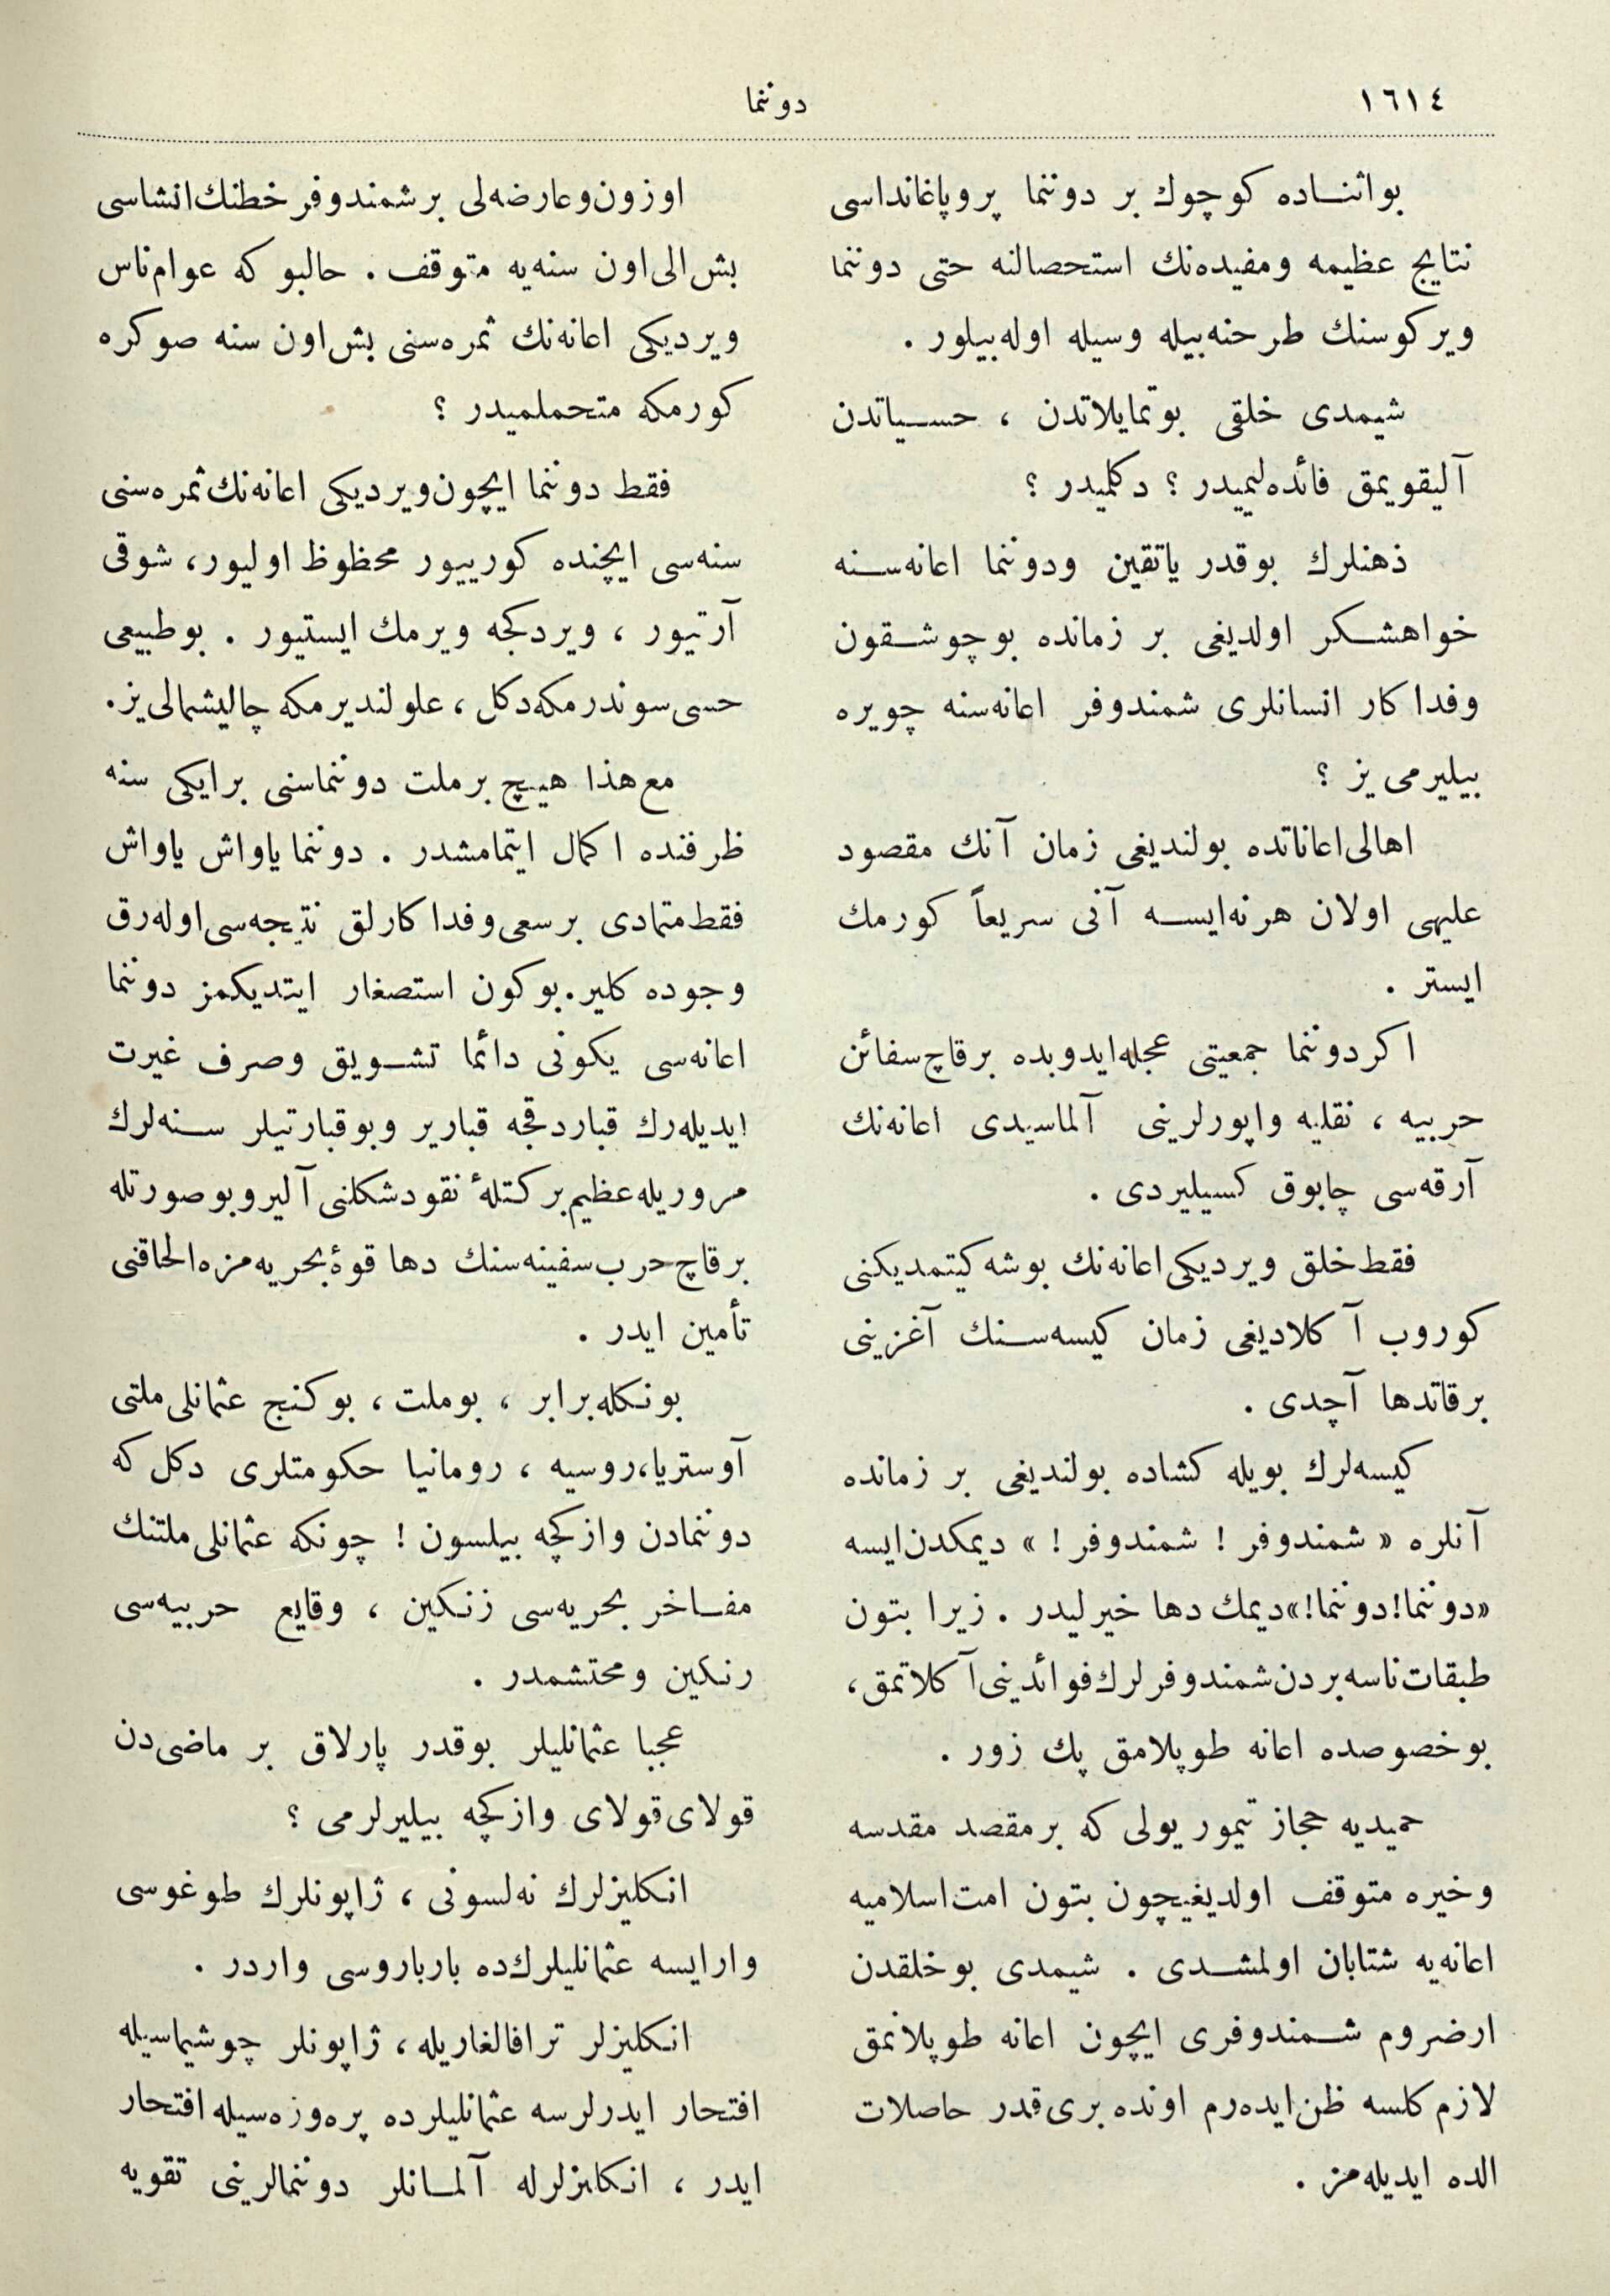 ١٦١٤
دوننما
بو اثنـاده كوچوك بر دوننما پروپاغانداسی
نتایج عظیمه ومفیده‌نك استحصالنه حتی دوننما
ویركوسنك طرحنه بیله وسیله اوله‌بیلور .
شیمدی خلقی بوتمایلاتدن ، حسـیاتدن
آلیقویمق فائده‌لیمیدر ؟ دكلمیدر ؟
ذهنلرك بوقدر یاتقین ودوننما اعانه‌سـنه
خواهشـكر اولدیغی بر زمانده بوچوشـقون
وفداكار انسانلری شمندوفر اعانه‌سنه چویره
بیلیرمی یز ؟
اهالی اعاناتده بولندیغی زمان آنك مقصود
علیهی اولان هرنه‌ایسـه آنی سریعاً كورمك
ایستر .
اكر دوننما جمعیتی عجله‌ایدوبده برقاچ سفائن
حربیه ، نقلیه واپورلرینی آلماسیدی اعانه‌نك
آرقه‌سی چابوق كسیلیردی .
فقط خلق ویردیكی اعانه‌نك بوشه كیتمدیكنی
كوروب آكلادیغی زمان كیسه‌سـنك آغزینی
برقاتدها آچدی .
كیسه‌لرك بویله كشاده بولندیغی بر زمانده
آنلره « شمندوفر ! شمندوفر ! » دیمكدن‌ایسه
«دوننما! دوننما!» دیمك دها خیرلیدر . زیرا بتون
طبقات ناسه بردن شمندوفرلرك فوائدینی آكلاتمق،
بوخصوصده اعانه طوپلامق پك زور .
حمیدیه حجاز تیمور یولی كه برمقصد مقدسه
وخیره متوقف اولدیغیچون بتون امت‌اسلامیه
اعانه‌یه شتابان اولمشـدی . شیمدی بوخلقدن
ارضروم شـمندوفری ایچون اعانه طوپلانمق
لازم كلسه ظن ایده‌رم اونده بری‌قدر حاصلات
الده ایدیله‌مز .
اوزون وعارضه‌لی برشمندوفر خطنك انشاسی
بش‌الی‌اون سنه‌یه متوقف . حالبو كه عوام‌ناس
ویردیكی اعانه‌نك ثمره‌سنی بش‌اون سنه صوكره
كورمكه متحملمیدر ؟
فقط دوننما ایچون ویردیكی اعانه‌نك ثمره‌سنی
سنه‌سی ایچنده كورییور محظوظ اولیور، شوقی
آرتیور ، ویردكجه ویرمك ایستیور . بوطبیعی
حسی سوندرمكه‌دكل ، علولندیرمكه چالیشمالی یز.
مع‌هذا هیچ برملت دوننماسنی برایكی سنه
ظرفنده اكمال ایتمامشدر . دوننما یاواش یاواش
فقط متمادی برسعی وفداكارلق نتیجه‌سی اوله‌رق
وجوده كلیر. بوكون استصغار ایتدیكمز دوننما
اعانه‌سی یكونی دائما تشـویق وصرف غیرت
ایدیله‌رك قباردقجه قباریر وبوقبارتیلر سـنه‌لرك
مروریله عظیم بركتلهٔ نقود شكلنی آلیر وبوصورتله
برقاچ حرب‌سفینه‌سنك دها قوهٔ بحریه‌مزه الحاقنی
تأمین ایدر .
بونكله‌برابر ، بوملت ، بوكنج عثمانلی ملتی
آوستریا، روسیه ، رومانیا حكومتلری دكل كه
دوننمادن وازكچه بیلسون ! چونكه عثمانلی ملتنك
مفـاخر بحریه‌سی زنكین ، وقایع حربیه‌سی
رنكین ومحتشمدر .
عجبا عثمانلیلر بوقدر پارلاق بر ماضی‌دن
قولای‌قولای وازكچه بیلیرلرمی ؟
انكلیزلرك نه‌لسونی ، ژاپونلرك طوغوسی
وارایسه عثمانلیلرك‌ده بارباروسی واردر .
انكلیزلر ترافالغاریله ، ژاپونلر چوشیماسیله
افتحار ایدرلرسه عثمانلیلرده پره‌وزه‌سیله افتحار
ایدر ، انكلیزلرله آلمـانلر دوننمالرینی تقویه